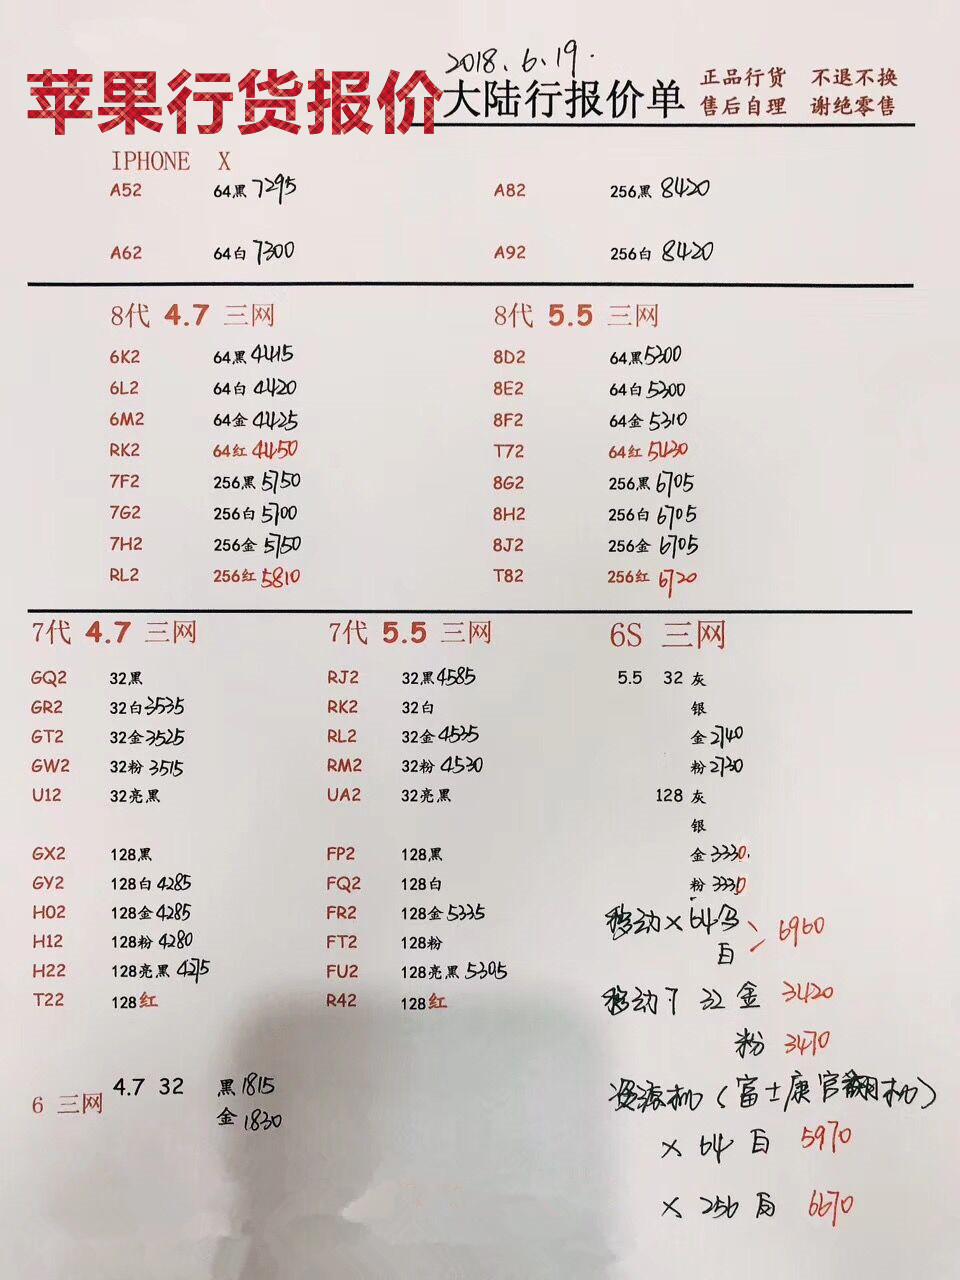 2018.6.19.
苹果行货报价
大陆行报价单
正品行货 不退不换
售后自理 谢绝零售
IPHONE X
A52 64黑 7295 A82 256黑 8420
A62 64白 7300 A92 256白 8420
8代 4.7 三网 8代 5.5 三网
6K2 64黑 4415 8D2 64黑 5300
6L2 64白 4420 8E2 64白 5300
6M2 64金 4425 8F2 64金 5310
RK2 64红 4450 T72 64红 5430
7F2 256黑 5750 8G2 256黑 6705
7G2 256白 5700 8H2 256白 6705
7H2 256金 5750 8J2 256金 6705
RL2 256红 5810 T82 256红 6720
7代 4.7 三网 7代 5.5 三网 6S 三网
GQ2 32黑 RJ2 32黑 4585 5.5 32 灰
GR2 32白 3535 RK2 32白 银
GT2 32金 3525 RL2 32金 4535 金 2740
GW2 32粉 3515 RM2 32粉 4530 粉 2730
U12 32亮黑 UA2 32亮黑 128 灰
银
GX2 128黑 FP2 128黑 金 3330.
GY2 128白 4285 FQ2 128白 粉 3330
H02 128金 4285 FR2 128金 5335
H12 128粉 4280 FT2 128粉
H22 128亮黑 4275 FU2 128亮黑 5305
T22 128红 R42 128红
移动X 64 6960
白
移动7 32 金 3420
粉 3470
6 三网 4.7 32 黑 1815
金 1830
资源机(富士康官翻机)
X 64 白 5970
X 256 白 6670